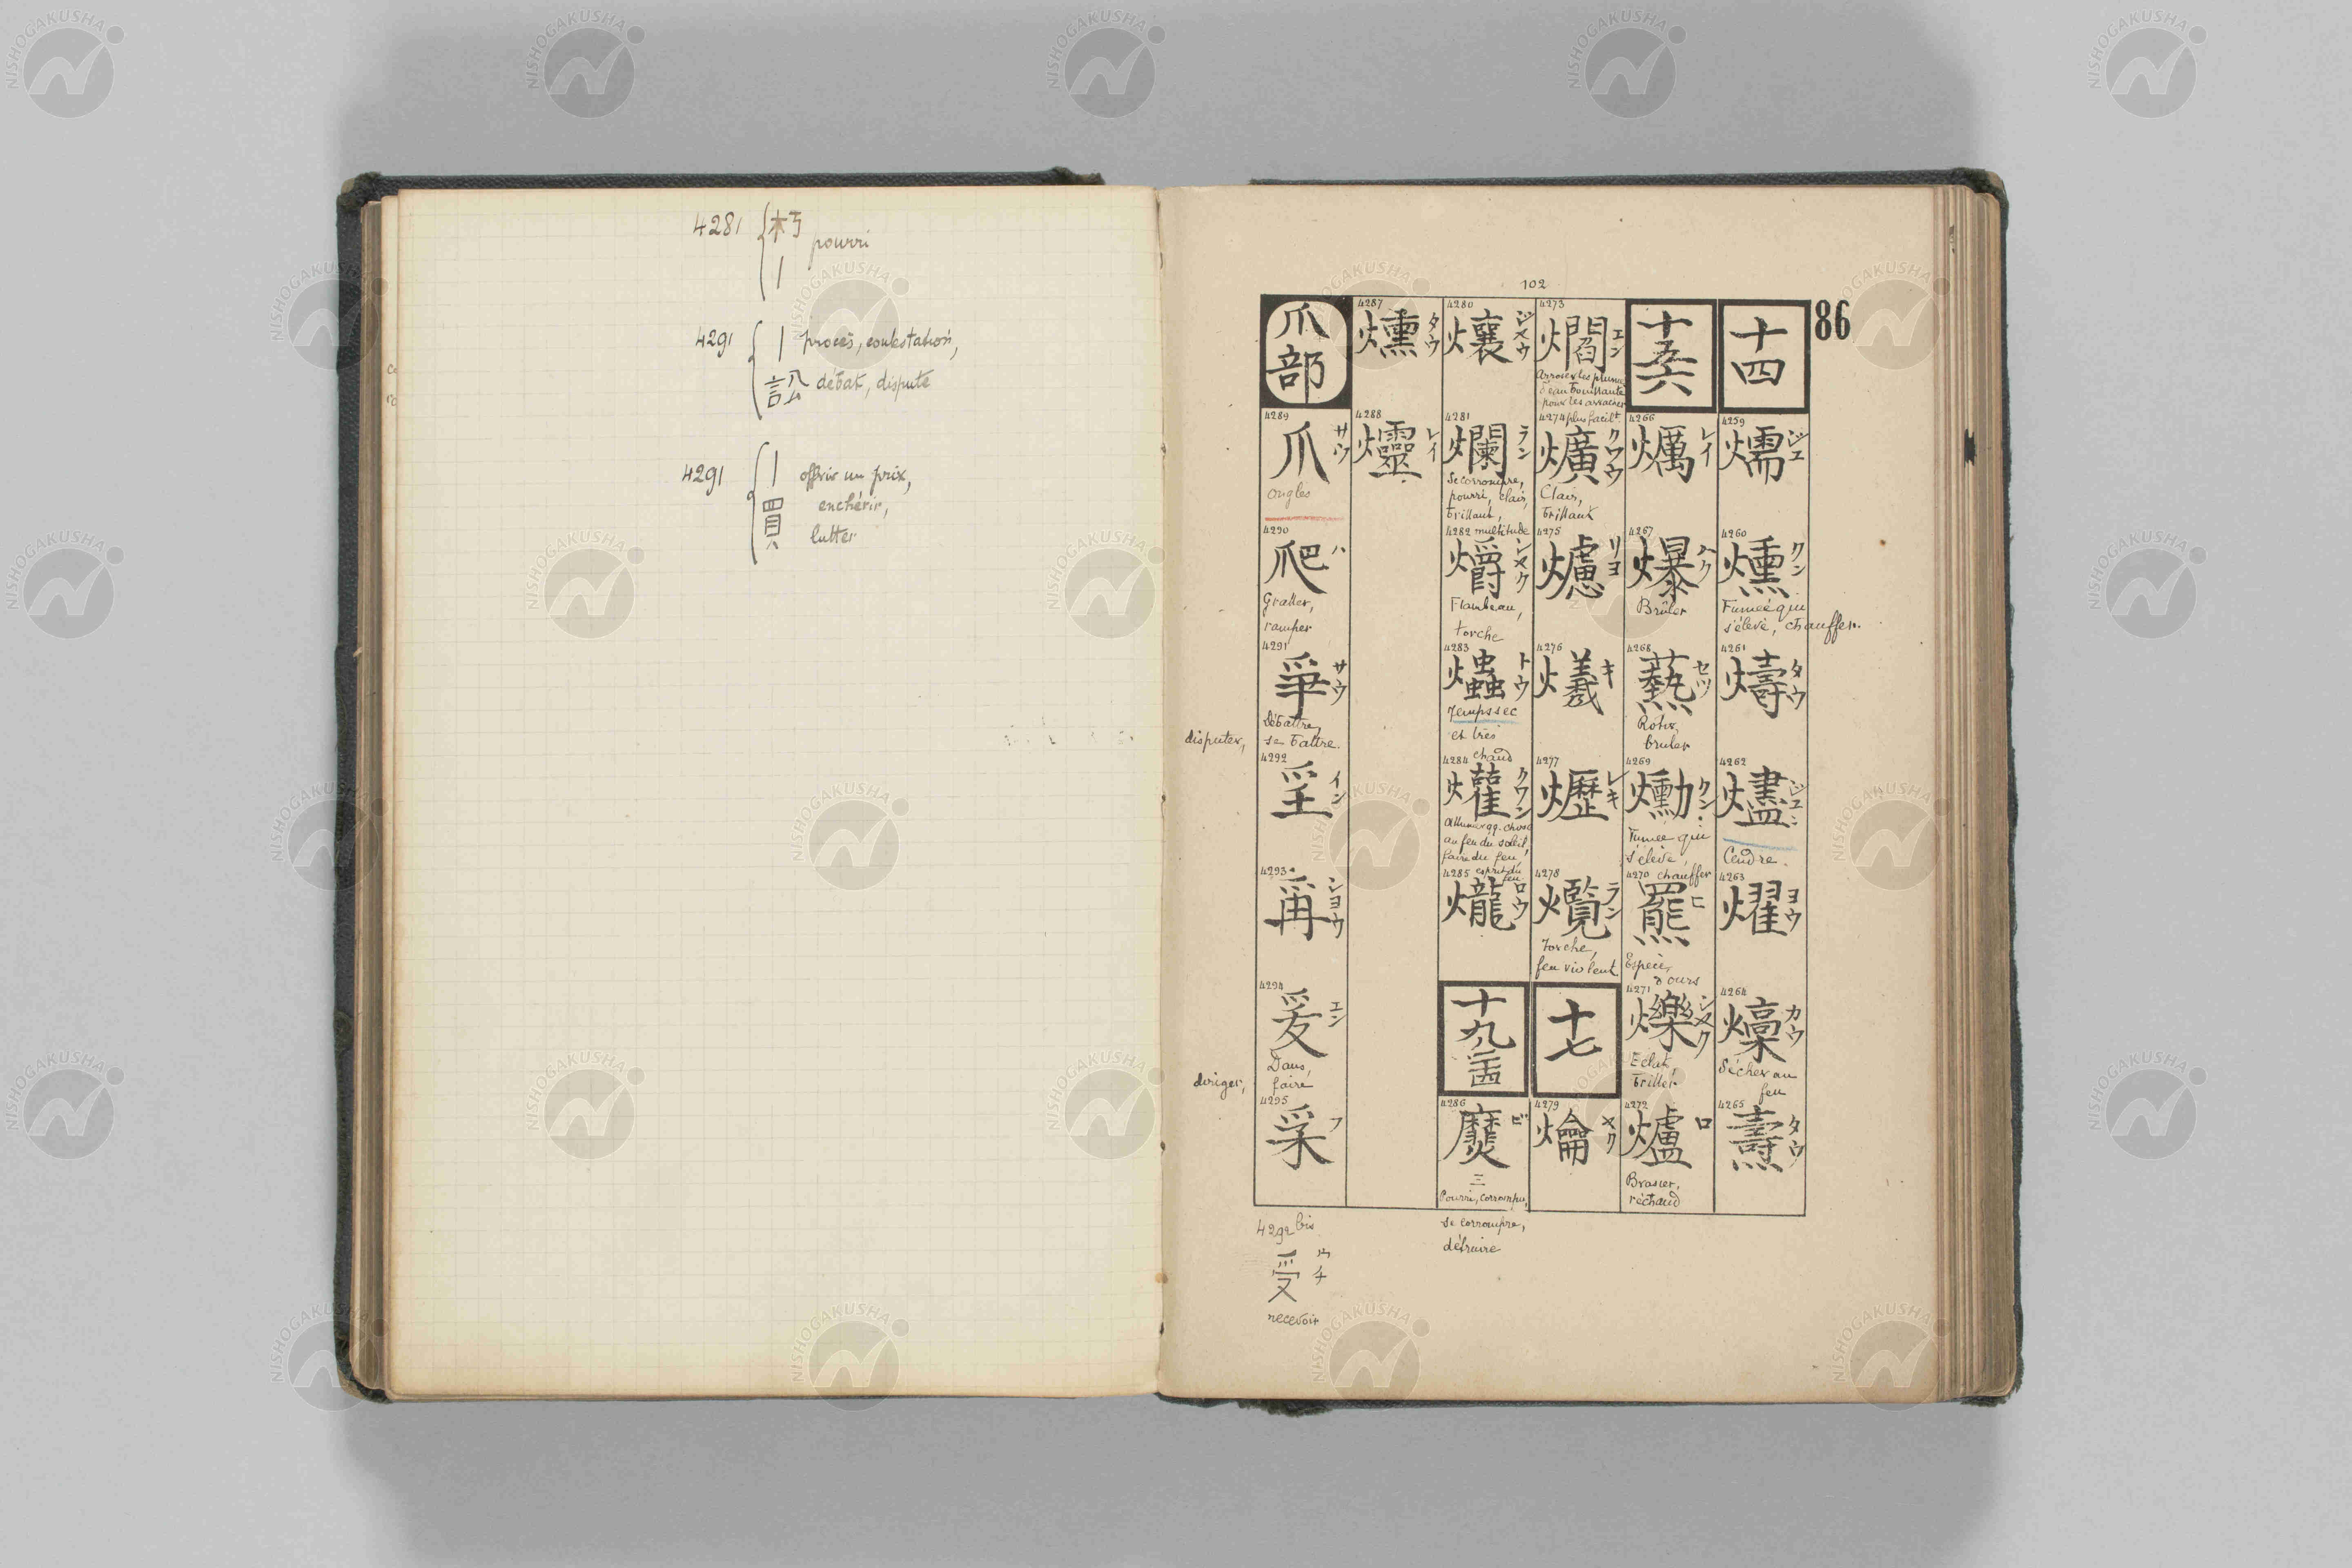 4281 朽 pourri
|
4291 | procès, contestation,
訟 débat, dispute
4291 | offrir un prix,
買 enchérir,
lutter
102
86
十四
4259
燸 ジユ
4260
燻 クン
Fumée qui
s'élève, chauffer.
4261
燽 タウ
4262
燼 ジユン
Cendre.
4263
燿 ヨウ
4264
燺 カウ
Sécher au
feu
4265
燾 タウ
十五六
4266
爄 レイ
4267
爆 ハク
Brûler
4268
爇 セツ
Rotir,
bruler
4269
爋 クン
Fumée qui
s'élève,
chauffer
4270
羆 ヒ
Espèce
d'ours
4271
爍 シヤク
Eclat,
briller
4272
爐 ロ
Brasier,
réchaud
4273
爓 エン
Arroser les plumes
d'eau bouillante
pour les arracher
plus facilt.
4274
爌 クワウ
Clair,
brillant
4275
爈 リヨ
4276
爔 キ
4277
爏 レキ
4278
爦 ラン
Torche,
feu violent
十七
4279
爚 ヤク
4280
爙 ジヤウ
4281
爛 ラン
Se corrompre,
pourri, clair,
brillant,
multitude
4282
爝 シヤク
Flambeau,
torche
4283
爞 トウ
Temps sec
et très
chaud
4284
爟 クワン
Allumer qq. chose
au feu du soleil,
faire du feu,
esprit du
feu
4285
爖 ロウ
十九
4286
爢 ビ
三
Pourri, corrompu,
se corrompre,
détruire
4287
タウ
4288
爧 レイ
爪部
4289
爪 サウ
ongles
4290
爬 ハ
Gratter,
ramper
4291
爭 サウ
Débattre,
se battre.
disputer,
4292
爫 イン
4293
爯 シヨウ
4294
爰 エン
Dans,
faire
diriger,
4295
フ
4292 bis
受 ウチ
recevoir
NISHOGAKUSHA